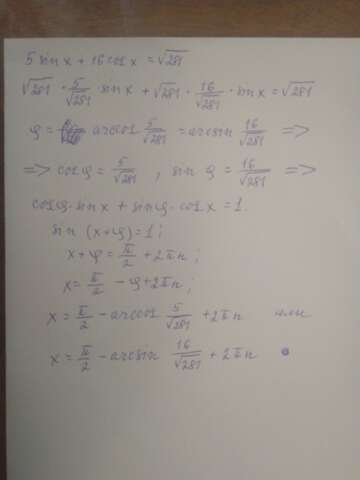 5 sin x + 16 cos x = √281
√281 · 5/√281 · sin x + √281 · 16/√281 · sin x = √281
φ = arccos 5/√281 = arcsin 16/√281 =>
=> cos φ = 5/√281 , sin φ = 16/√281 =>
cos φ · sin x + sin φ · cos x = 1.
sin (x+φ) = 1 ;
x + φ = π/2 + 2πn ;
x = π/2 - φ + 2πn ;
x = π/2 - arccos 5/√281 + 2πn или
x = π/2 - arcsin 16/√281 + 2πn